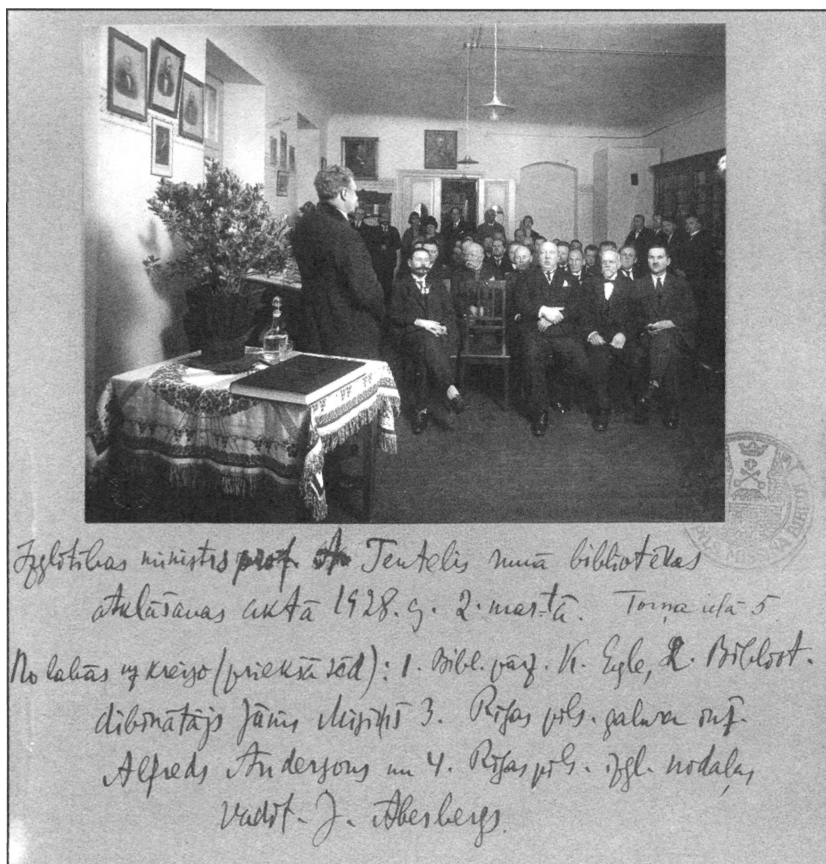 Izglītības ministrs prof. Tentelis runā bibliotēkas
atklāšanas aktā 1928. g. 2. martā. Torņa ielā 5
No labās uz kreiso (priekšā sēd): 1. Bibl. pārz. K. Egle, 2. Bibliot.
dibinātājs Jānis Misiņš 3. Rīgas pils. galva inž.
Alfreds Andersons un 4. Rīgas pils. izgl. nodaļas
vadīt. J. Abesbergs.